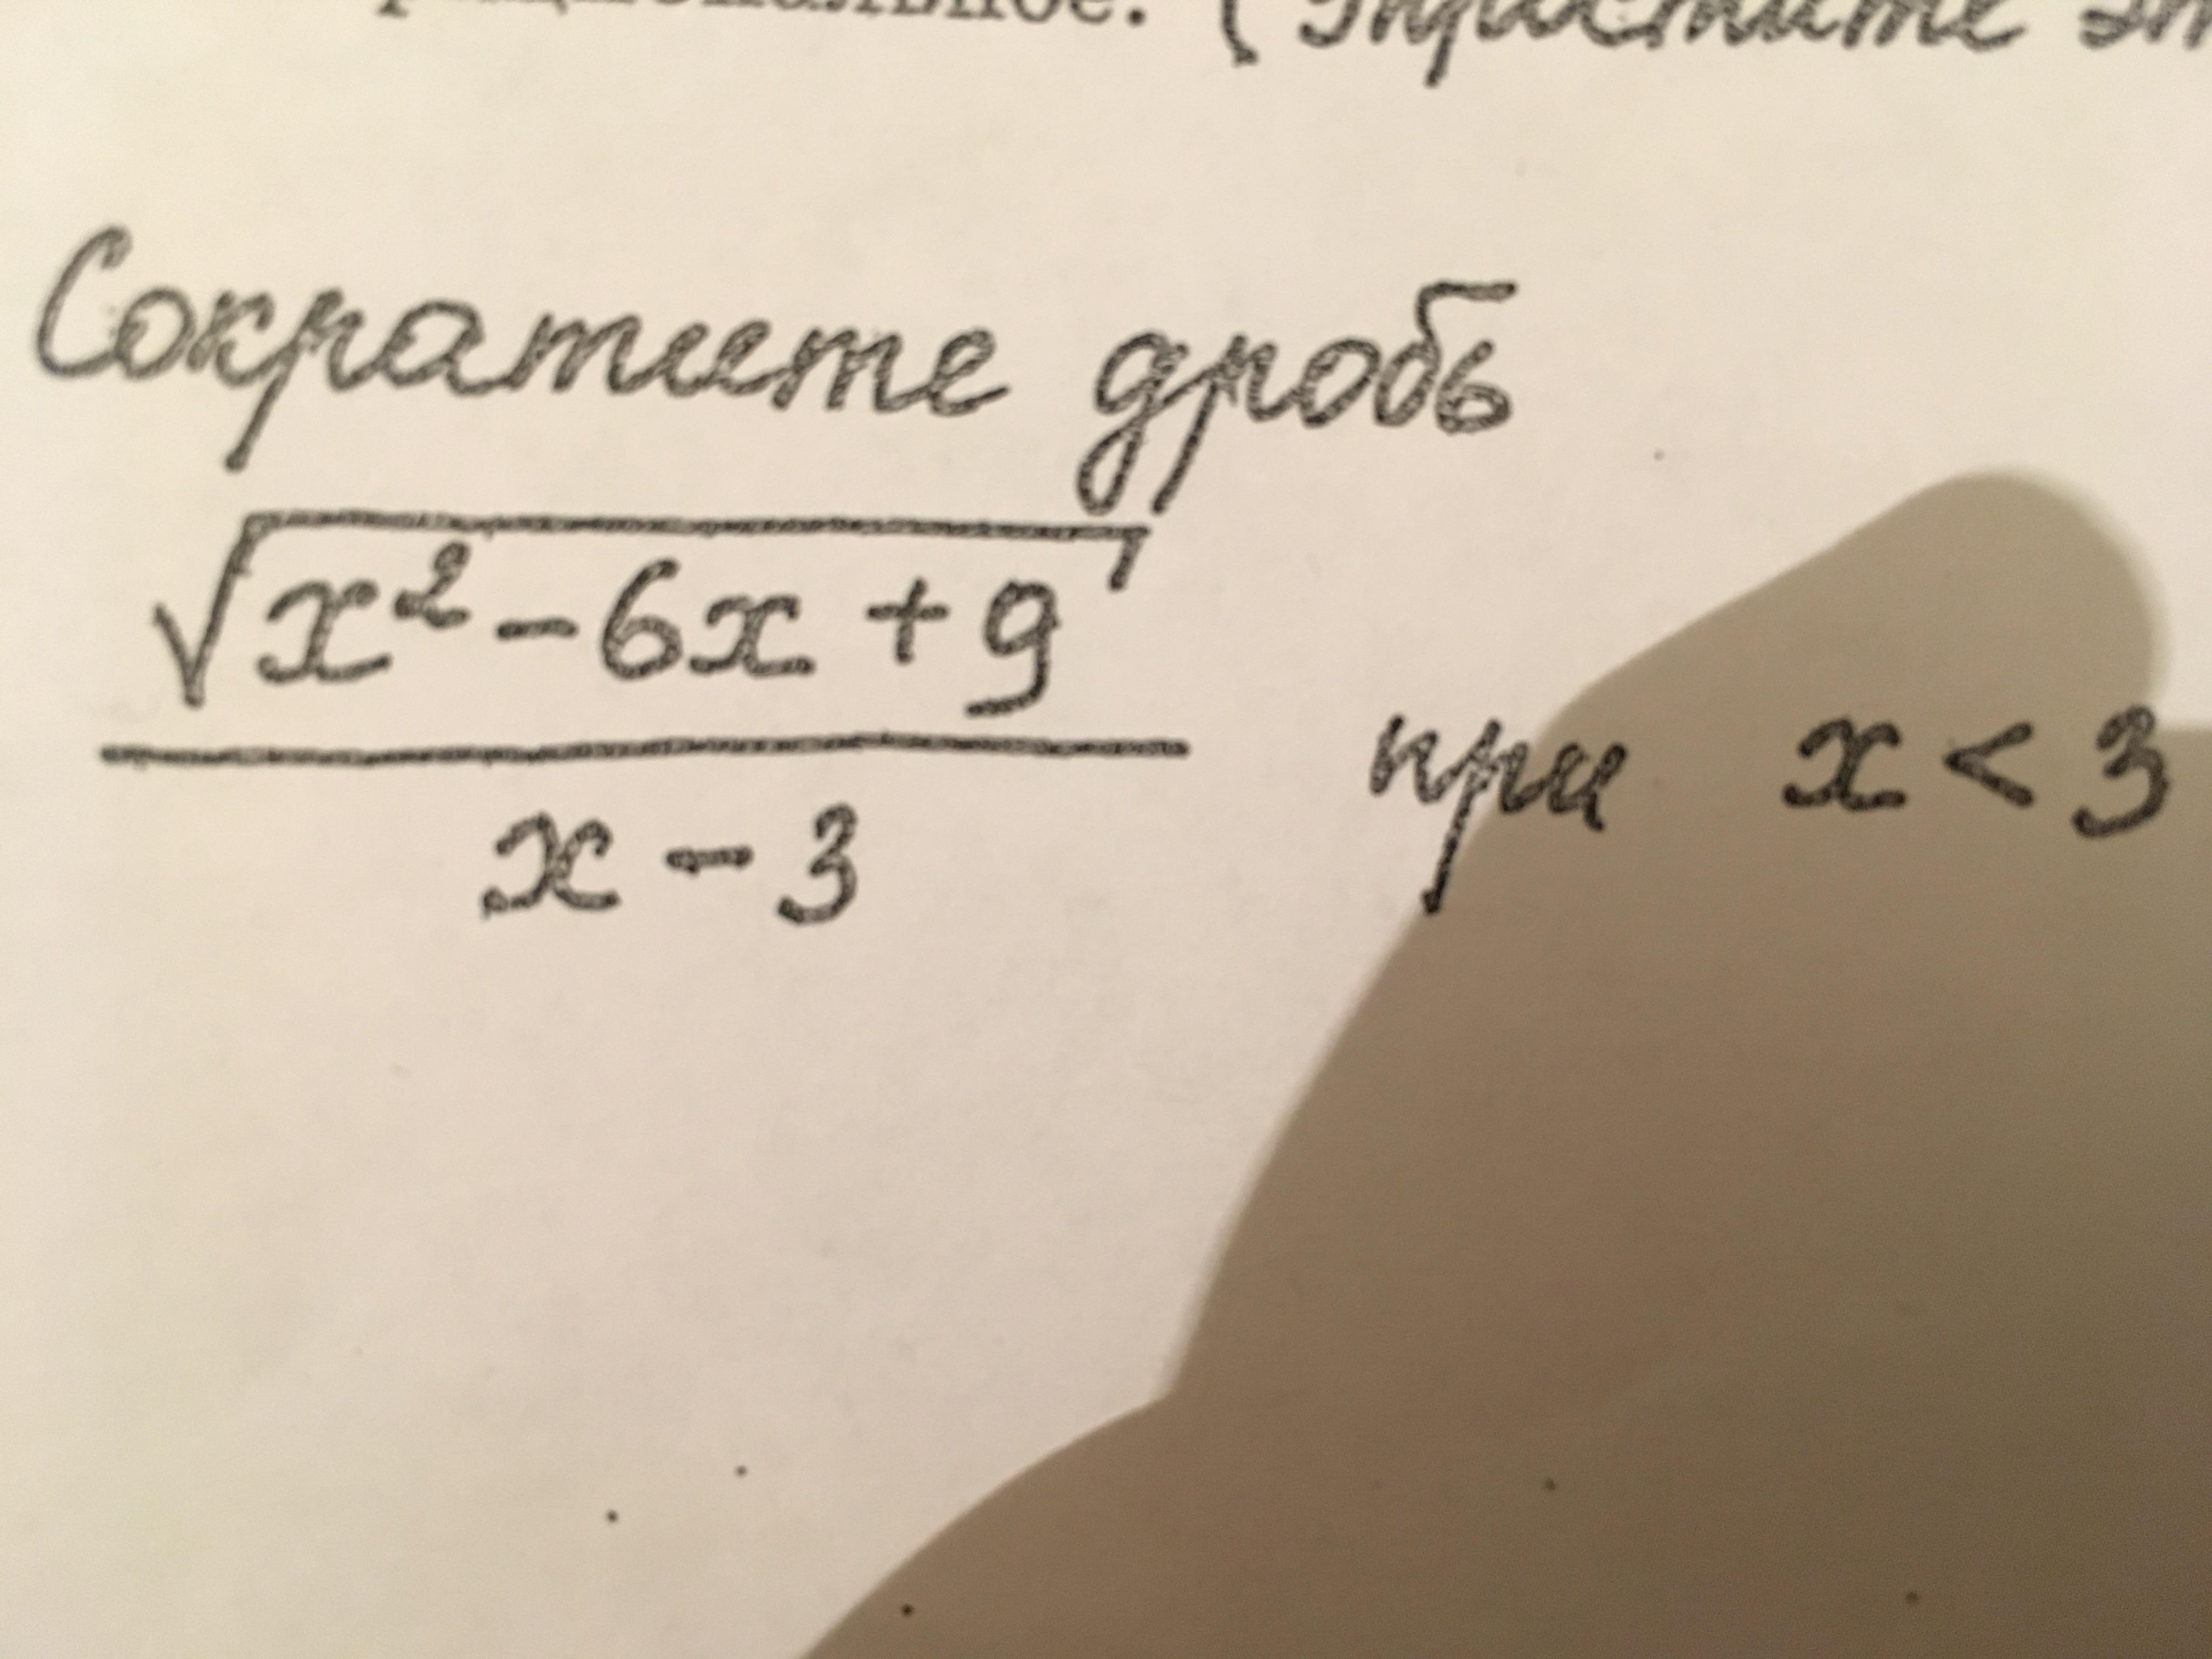 (Упростите
Сократите дробь
√x² - 6x + 9
x - 3
при x < 3